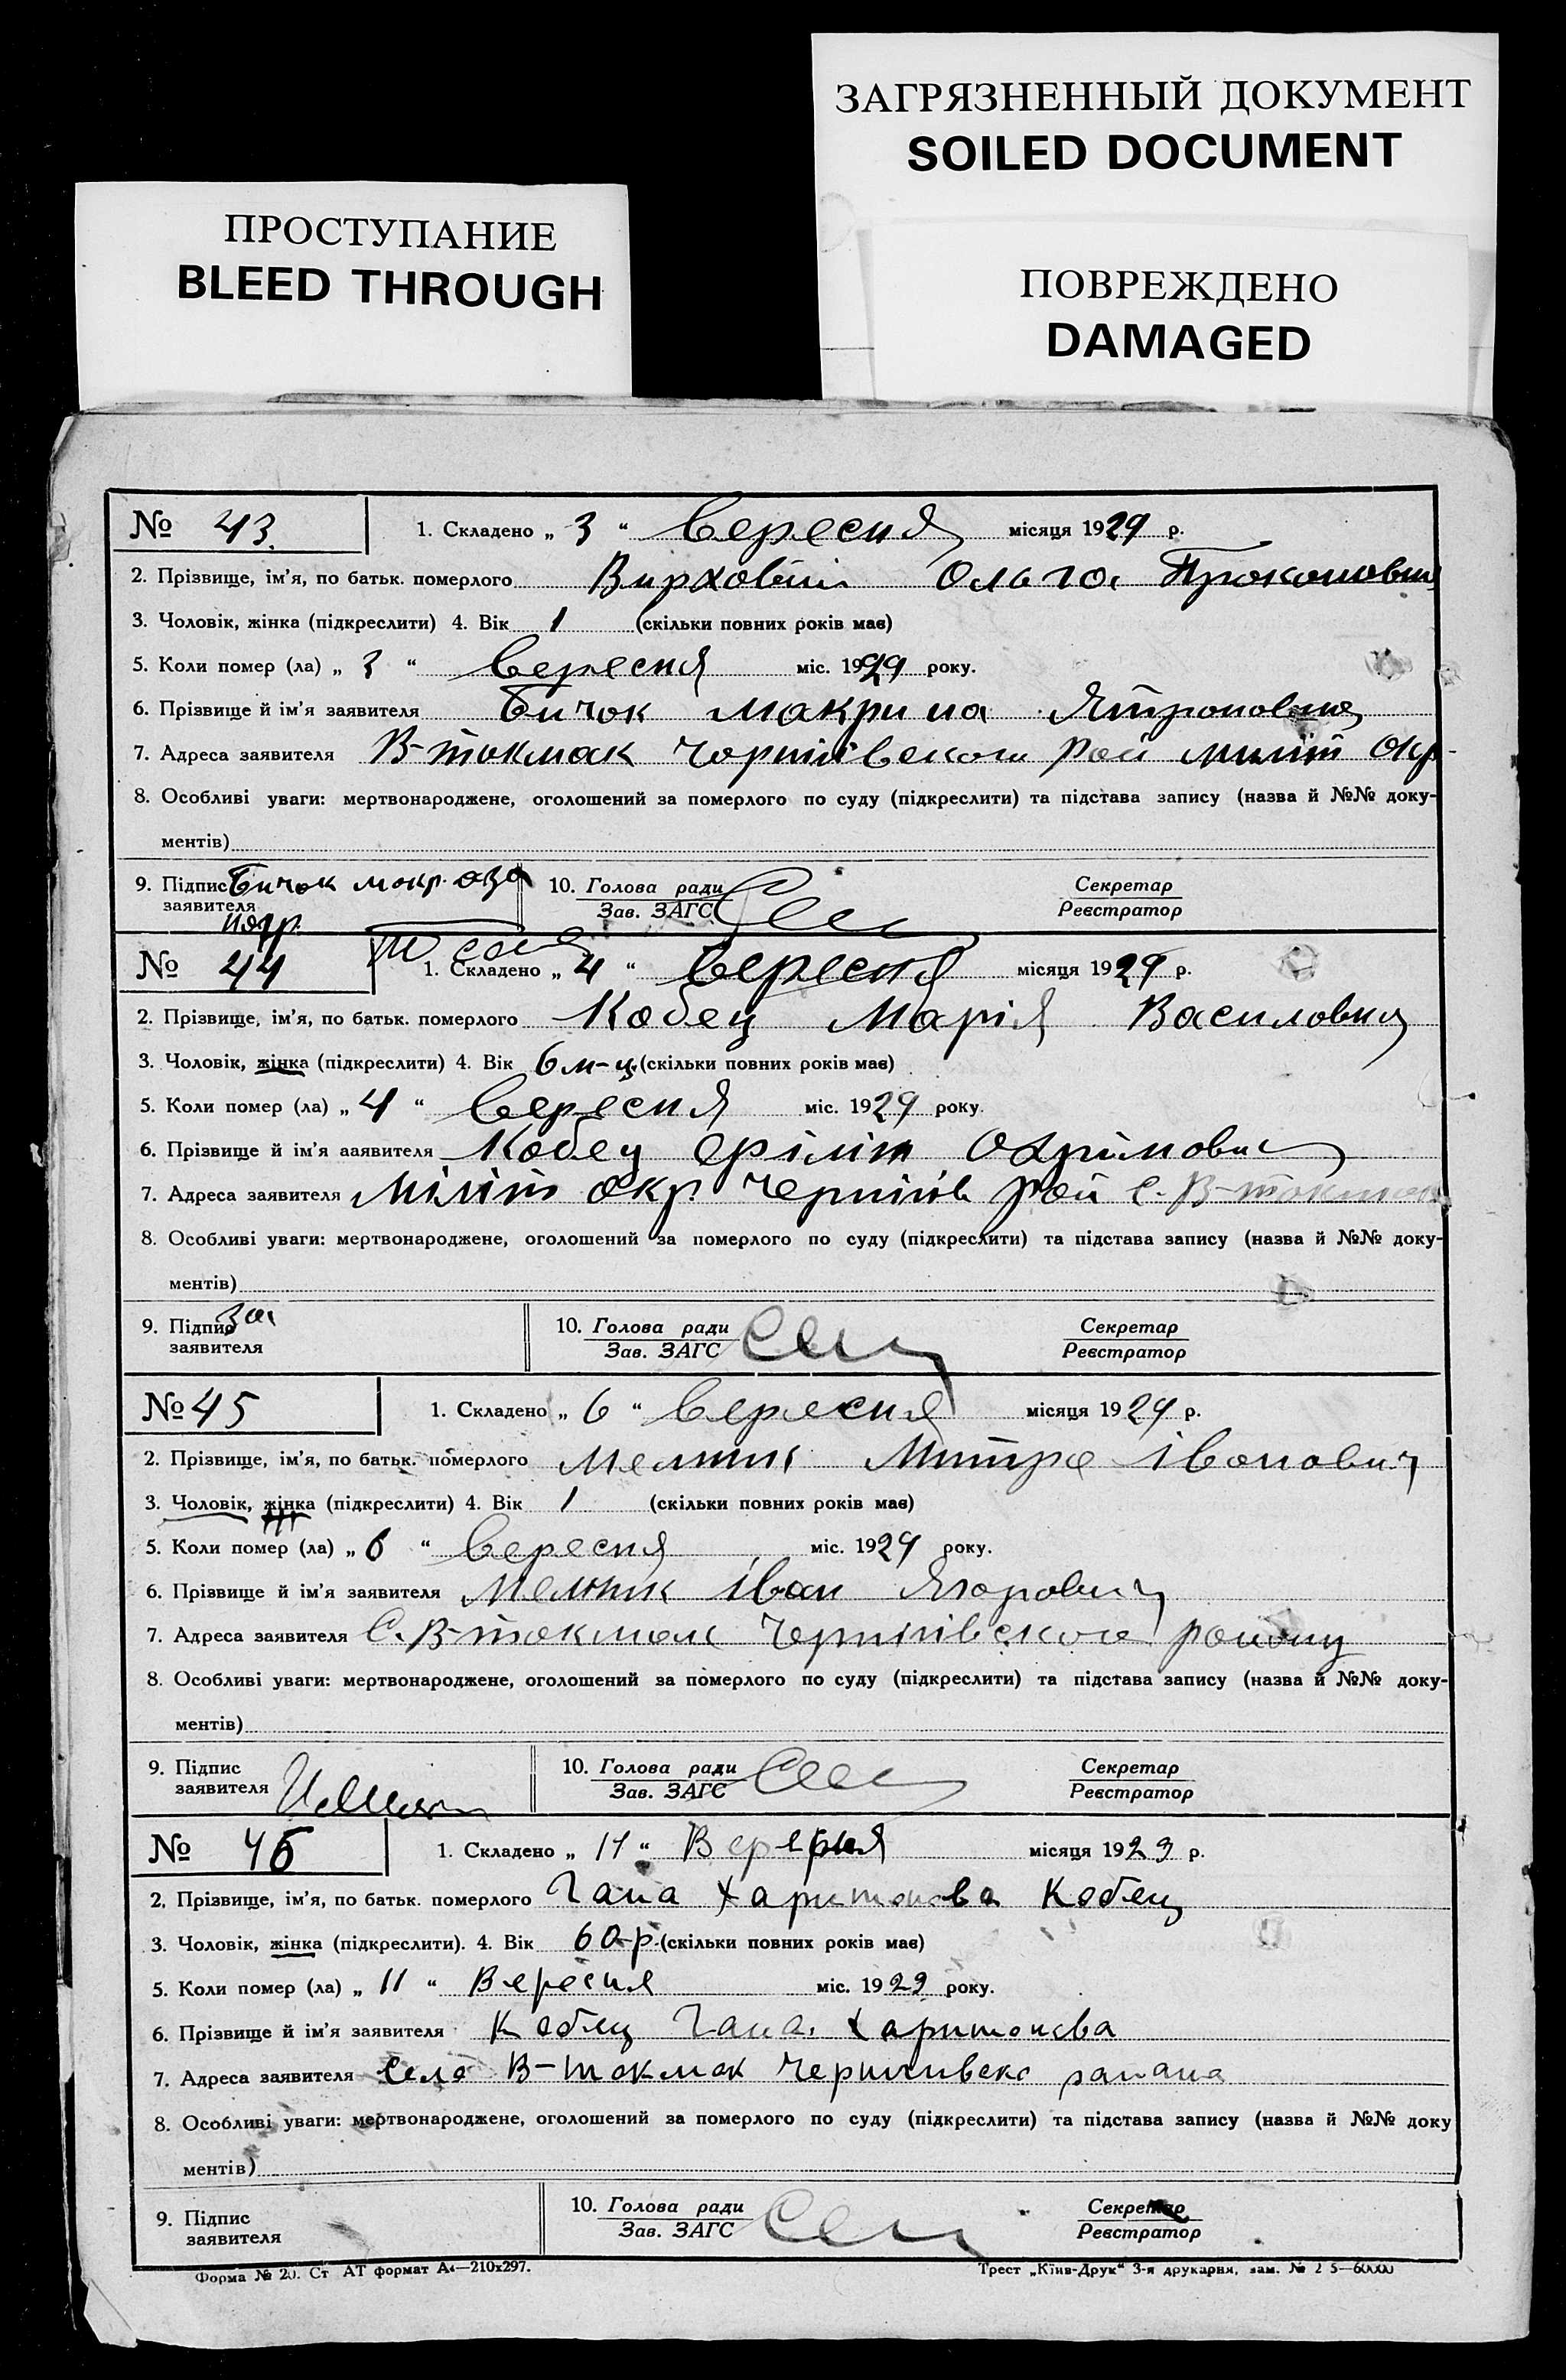 ЗАГРЯЗНЕННЫЙ ДОКУМЕНТ
SOILED DOCUMENT
ПРОСТУПАНИЕ
BLEED THROUGH
ПОВРЕЖДЕНО
DAMAGED
№ 43. 1. Складено „ 3 “ вересня місяця 1929 р.
2. Прізвище, ім’я, по батьк. померлого Ольга
3. Чоловік, жінка (підкреслити) 4. Вік 1 (скільки повних років має)
5. Коли помер (ла) „ 3 “ вересня міс. 1929 року.
6. Прізвище й ім’я заявителя Бичок Макрина
7. Адреса заявителя В-токмак рай Окр
8. Особливі уваги: мертвонароджене, оголошений за померлого по суду (підкреслити) та підстава запису (назва й №№ доку-
ментів)
9. Підпис заявителя Бичок 10. Голова ради Зав. ЗАГС Секретар Реєстратор
№ 44 1. Складено „ 4 “ вересня місяця 1929 р.
2. Прізвище, ім’я, по батьк. померлого Кобец Марія Василовна
3. Чоловік, жінка (підкреслити) 4. Вік 6 м-ц. (скільки повних років має)
5. Коли помер (ла) „ 4 “ вересня міс. 1929 року.
6. Прізвище й ім’я заявителя Кобец
7. Адреса заявителя Меліт окр рай с. В-токмак
8. Особливі уваги: мертвонароджене, оголошений за померлого по суду (підкреслити) та підстава запису (назва й №№ доку-
ментів)
9. Підпис заявителя за 10. Голова ради Зав. ЗАГС Секретар Реєстратор
№ 45 1. Складено „ 6 “ вересня місяця 1929 р.
2. Прізвище, ім’я, по батьк. померлого Мелник Митро Іванович
3. Чоловік, жінка (підкреслити) 4. Вік 1 (скільки повних років має)
5. Коли помер (ла) „ 6 “ вересня міс. 1929 року.
6. Прізвище й ім’я заявителя Мелник Іван Ягорович
7. Адреса заявителя С. В-токмак району
8. Особливі уваги: мертвонароджене, оголошений за померлого по суду (підкреслити) та підстава запису (назва й №№ доку-
ментів)
9. Підпис заявителя 10. Голова ради Зав. ЗАГС Секретар Реєстратор
№ 46 1. Складено „ 11 “ Вересня місяця 1929 р.
2. Прізвище, ім’я, по батьк. померлого Гана Харитонова Кобец
3. Чоловік, жінка (підкреслити). 4. Вік 60-р. (скільки повних років має)
5. Коли помер (ла) „ 11 “ Вересня міс. 1929 року.
6. Прізвище й ім’я заявителя Кобец Гана Харитонова
7. Адреса заявителя село В-токмак
8. Особливі уваги: мертвонароджене, оголошений за померлого по суду (підкреслити) та підстава запису (назва й №№ доку
ментів)
9. Підпис заявителя 10. Голова ради Зав. ЗАГС Секретар Реєстратор
Форма № 20. Ст АТ формат А4—210х297. Трест „Київ-Друк“ 3-я друкарня, зам. №